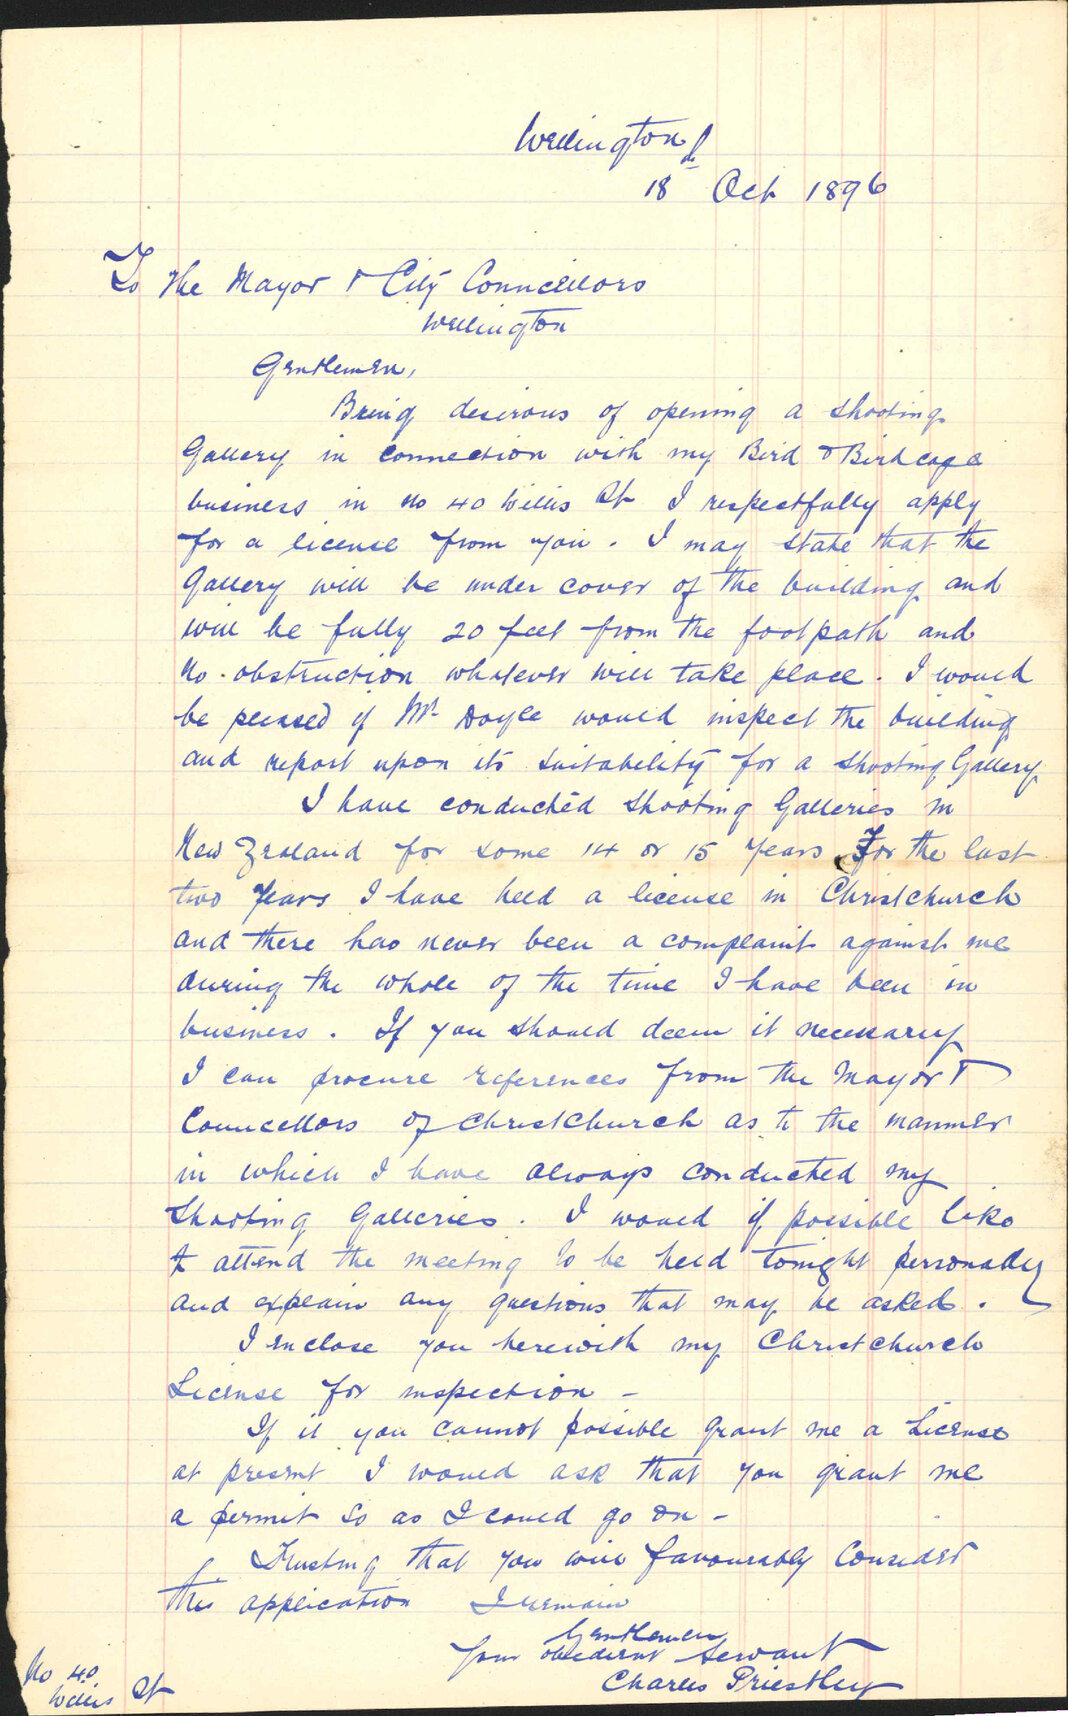 Wellington
18th Oct 1896
To The Mayor & City Councellors
Wellington
Gentlemen,
Being desirous of opening a Shooting
Gallery in connection with my Bird & Birdcage
business in No 40 Willis St I respectfully apply
for a license from you. I may state that the
Gallery will be under cover of the building and
will be fully 20 feet from the footpath and
no obstruction whatever will take place. I would
be pleased if Mr Doyle would inspect the building
and report upon its suitability for a shooting Gallery
I have conducted Shooting Galleries in
New Zealand for some 14 or 15 years For the last
two years I have held a license in Christchurch
and there has never been a complaint against me
during the whole of the time I have been in
business. If you should deem it necessary
I can procure references from the Mayor &
Councellors of Christchurch as to the manner
in which I have always conducted my
Shooting Galleries. I would if possible like
to attend the meeting to be held tonight personally
and explain any questions that may be asked.
I inclose you herewith my Christchurch
License for inspection -
If it you cannot possible grant me a License
at present I would ask that you grant me
a permit so as I could go on -
Trusting that you will favourably Consider
this application I remain
Gentlemen
Your obedient Servant
Charles Priestley
No 40
Willis St